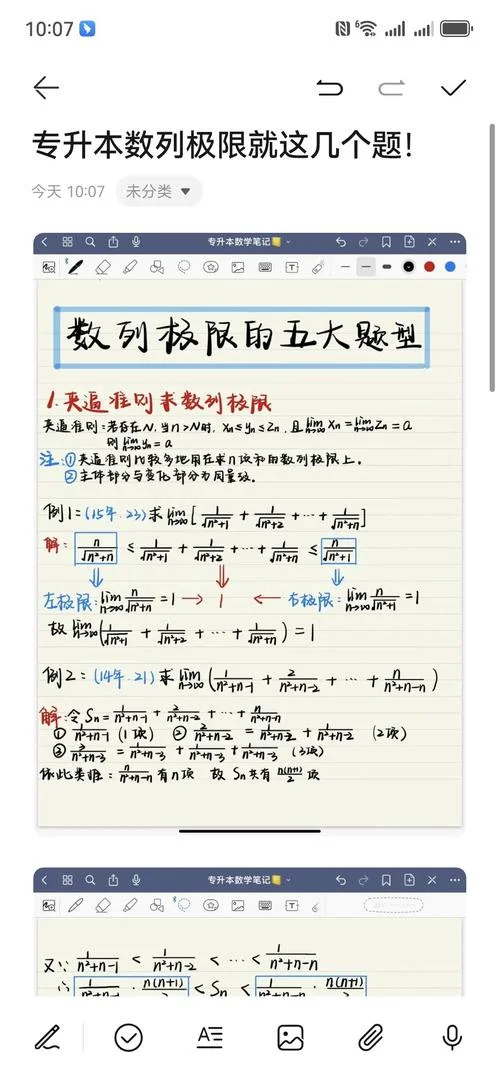 10:07
专升本数列极限就这几个题!
今天 10:07 未分类
专升本数学笔记
数列极限的五大题型
1.夹逼准则求数列极限
夹逼准则:若存在N,当n>N时, xn≤yn≤zn, 且lim n→∞ xn=lim n→∞ zn=a
则 lim n→∞ yn=a
注:①夹逼准则比较多地用在求n项和的数列极限上。
②主体部分与变化部分为同量级。
例1:(15年.23)求lim n→∞ [1/√(n²+1) + 1/√(n²+2) + ··· + 1/√(n²+n)]
解: n/√(n²+n) ≤ 1/√(n²+1) + 1/√(n²+2) + ··· + 1/√(n²+n) ≤ n/√(n²+1)
左极限:lim n→∞ n/√(n²+n) =1 → 1 ← 右极限:lim n→∞ n/√(n²+1) =1
故 lim n→∞ (1/√(n²+1) + 1/√(n²+2) + ··· + 1/√(n²+n)) =1
例2:(14年.21)求 lim n→∞ (1/(n²+n-1) + 2/(n²+n-2) + ··· + n/(n²+n-n))
解:令Sn=1/(n²+n-1) + 2/(n²+n-2) + ··· + n/(n²+n-n)
① 1/(n²+n-1) (1项) ② 2/(n²+n-2) = 1/(n²+n-2) + 1/(n²+n-2) (2项)
③ 3/(n²+n-3) = 1/(n²+n-3) + 1/(n²+n-3) + 1/(n²+n-3) (3项)
依此类推: n/(n²+n-n) 有n项 故 Sn共有 n(n+1)/2 项
专升本数学笔记
又∵ 1/(n²+n-1) < 1/(n²+n-2) < ··· < 1/(n²+n-n)
∴ 1/(n²+n-1) · n(n+1)/2 < Sn < 1/(n²+n-n) · n(n+1)/2